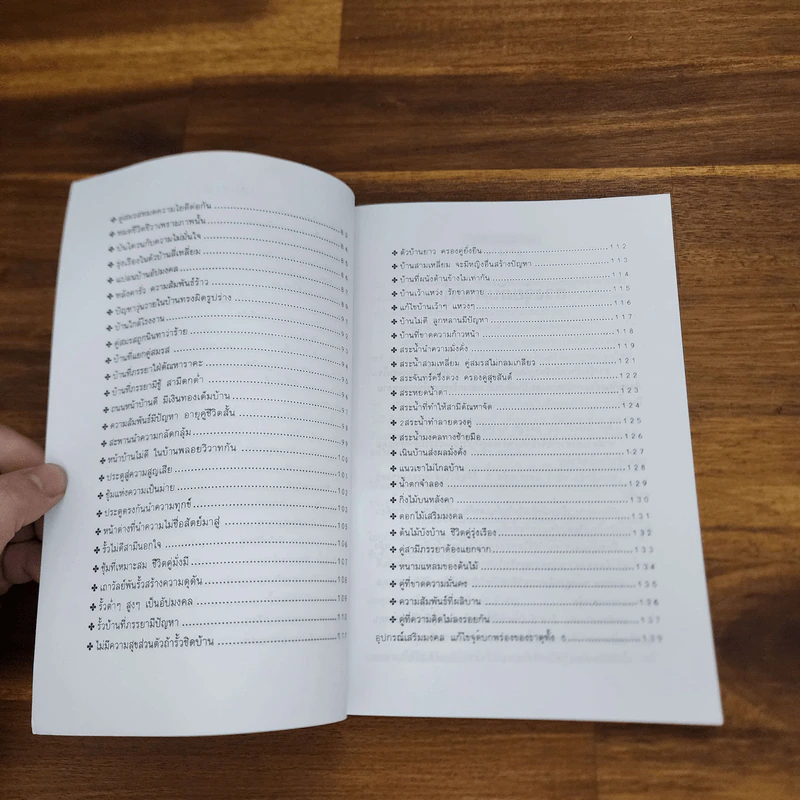 ✤ คู่สมรสหมดความใยดีต่อกัน ........ 83
✤ หมดชีวิตชีวาเพราะภาพนั้น ........
✤ บันไดวนกับความไม่มั่นใจ ........
✤ รุ่งเรืองในตัวบ้านสี่เหลี่ยม ........
✤ แปลนบ้านอัปมงคล ........
✤ หลังคารั่ว ความสัมพันธ์ร้าว ........
✤ ปัญหาวุ่นวายในบ้านทรงผิดรูปร่าง ........
✤ บ้านใกล้โรงงาน ........
✤ คู่สมรสถูกนินทาว่าร้าย ........
✤ บ้านที่แยกคู่สมรส ........
✤ บ้านที่ภรรยาใฝ่ตัณหาราคะ ........
✤ บ้านที่ภรรยามีชู้ สามีตกต่ำ ........
✤ ถนนหน้าบ้านดี มีเงินทองเต็มบ้าน ........
✤ ความสัมพันธ์มีปัญหา อายุคู่ชีวิตสั้น ........ 97
✤ สะพานนำความกลัดกลุ้ม ........ 98
✤ หน้าบ้านไม่ดี ในบ้านพลอยวิวาทกัน ........
✤ ประตูสู่ความสูญเสีย ........ 101
✤ ซุ้มแห่งความเป็นม่าย ........ 102
✤ ประตูตรงกันนำความทุกข์ ........ 103
✤ หน้าต่างที่นำความไม่ซื่อสัตย์มาสู่ ........ 104
✤ รั้วไม่ดีสามีนอกใจ ........ 105
✤ ซุ้มที่เหมาะสม ชีวิตคู่มั่งมี ........ 106
✤ เถาวัลย์พันรั้วสร้างความดุดัน ........
✤ รั้วต่ำๆ สูงๆ เป็นอัปมงคล ........
✤ รั้วบ้านที่ภรรยามีปัญหา ........
✤ ไม่มีความสุขส่วนตัวถ้ารั้วชิดบ้าน ........
✤ ตัวบ้านยาว ครองคู่ยั่งยืน ........ 112
✤ บ้านสามเหลี่ยม จะมีหญิงอื่นสร้างปัญหา ........ 113
✤ บ้านที่ผนังด้านข้างไม่เท่ากัน ........ 114
✤ บ้านเว้าแหว่ง รักขาดหาย ........ 115
✤ แก้ไขบ้านเว้าๆ แหว่งๆ ........ 116
✤ บ้านไม่ดี ลูกหลานมีปัญหา ........ 117
✤ บ้านที่ขาดความก้าวหน้า ........ 118
✤ สระน้ำนำความมั่งคั่ง ........ 119
✤ สระน้ำสามเหลี่ยม คู่สมรสไม่กลมเกลียว ........ 121
✤ สระจันทร์ครึ่งดวง ครองคู่สุขสันต์ ........ 122
✤ สระหยดน้ำตา ........ 123
✤ สระน้ำที่ทำให้สามีตัณหาจัด ........ 124
✤ 2สระน้ำทำลายดวงคู่ ........ 125
✤ สระน้ำมงคลทางซ้ายมือ ........ 126
✤ เนินบ้านส่งผลมั่งคั่ง ........ 127
✤ แนวเขาไม่ไกลบ้าน ........ 128
✤ น้ำตกจำลอง ........ 129
✤ กิ่งไม้บนหลังคา ........ 130
✤ ดอกไม้เสริมมงคล ........ 131
✤ ต้นไม้บังบ้าน ชีวิตคู่รุ่งเรือง ........ 132
✤ คู่สามีภรรยาต้องแยกจาก ........ 133
✤ หนามแหลมของต้นไม้ ........ 134
✤ คู่ที่ขาดความมั่นคง ........ 135
✤ ความสัมพันธ์ที่ผลิบาน ........ 136
✤ คู่ที่ความคิดไม่ลงรอยกัน ........ 137
อุปกรณ์เสริมมงคล แก้ไขจุดบกพร่องของธาตุทั้ง 5 ........ 139